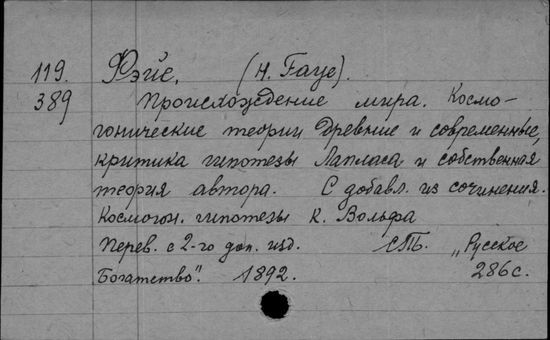 119. Фэйе, (H. Faye).
389 Происхождение мира. Космо-
гонические теории древние и современные,
критика гипотезы Лапласа и собственная
теория автора. С добавл. из сочинения.
Космогон. гипотезы К. Вольфа
Перев. с 2-го доп. изд. СПб. „Русское
Богатство". 1892. 286 с.